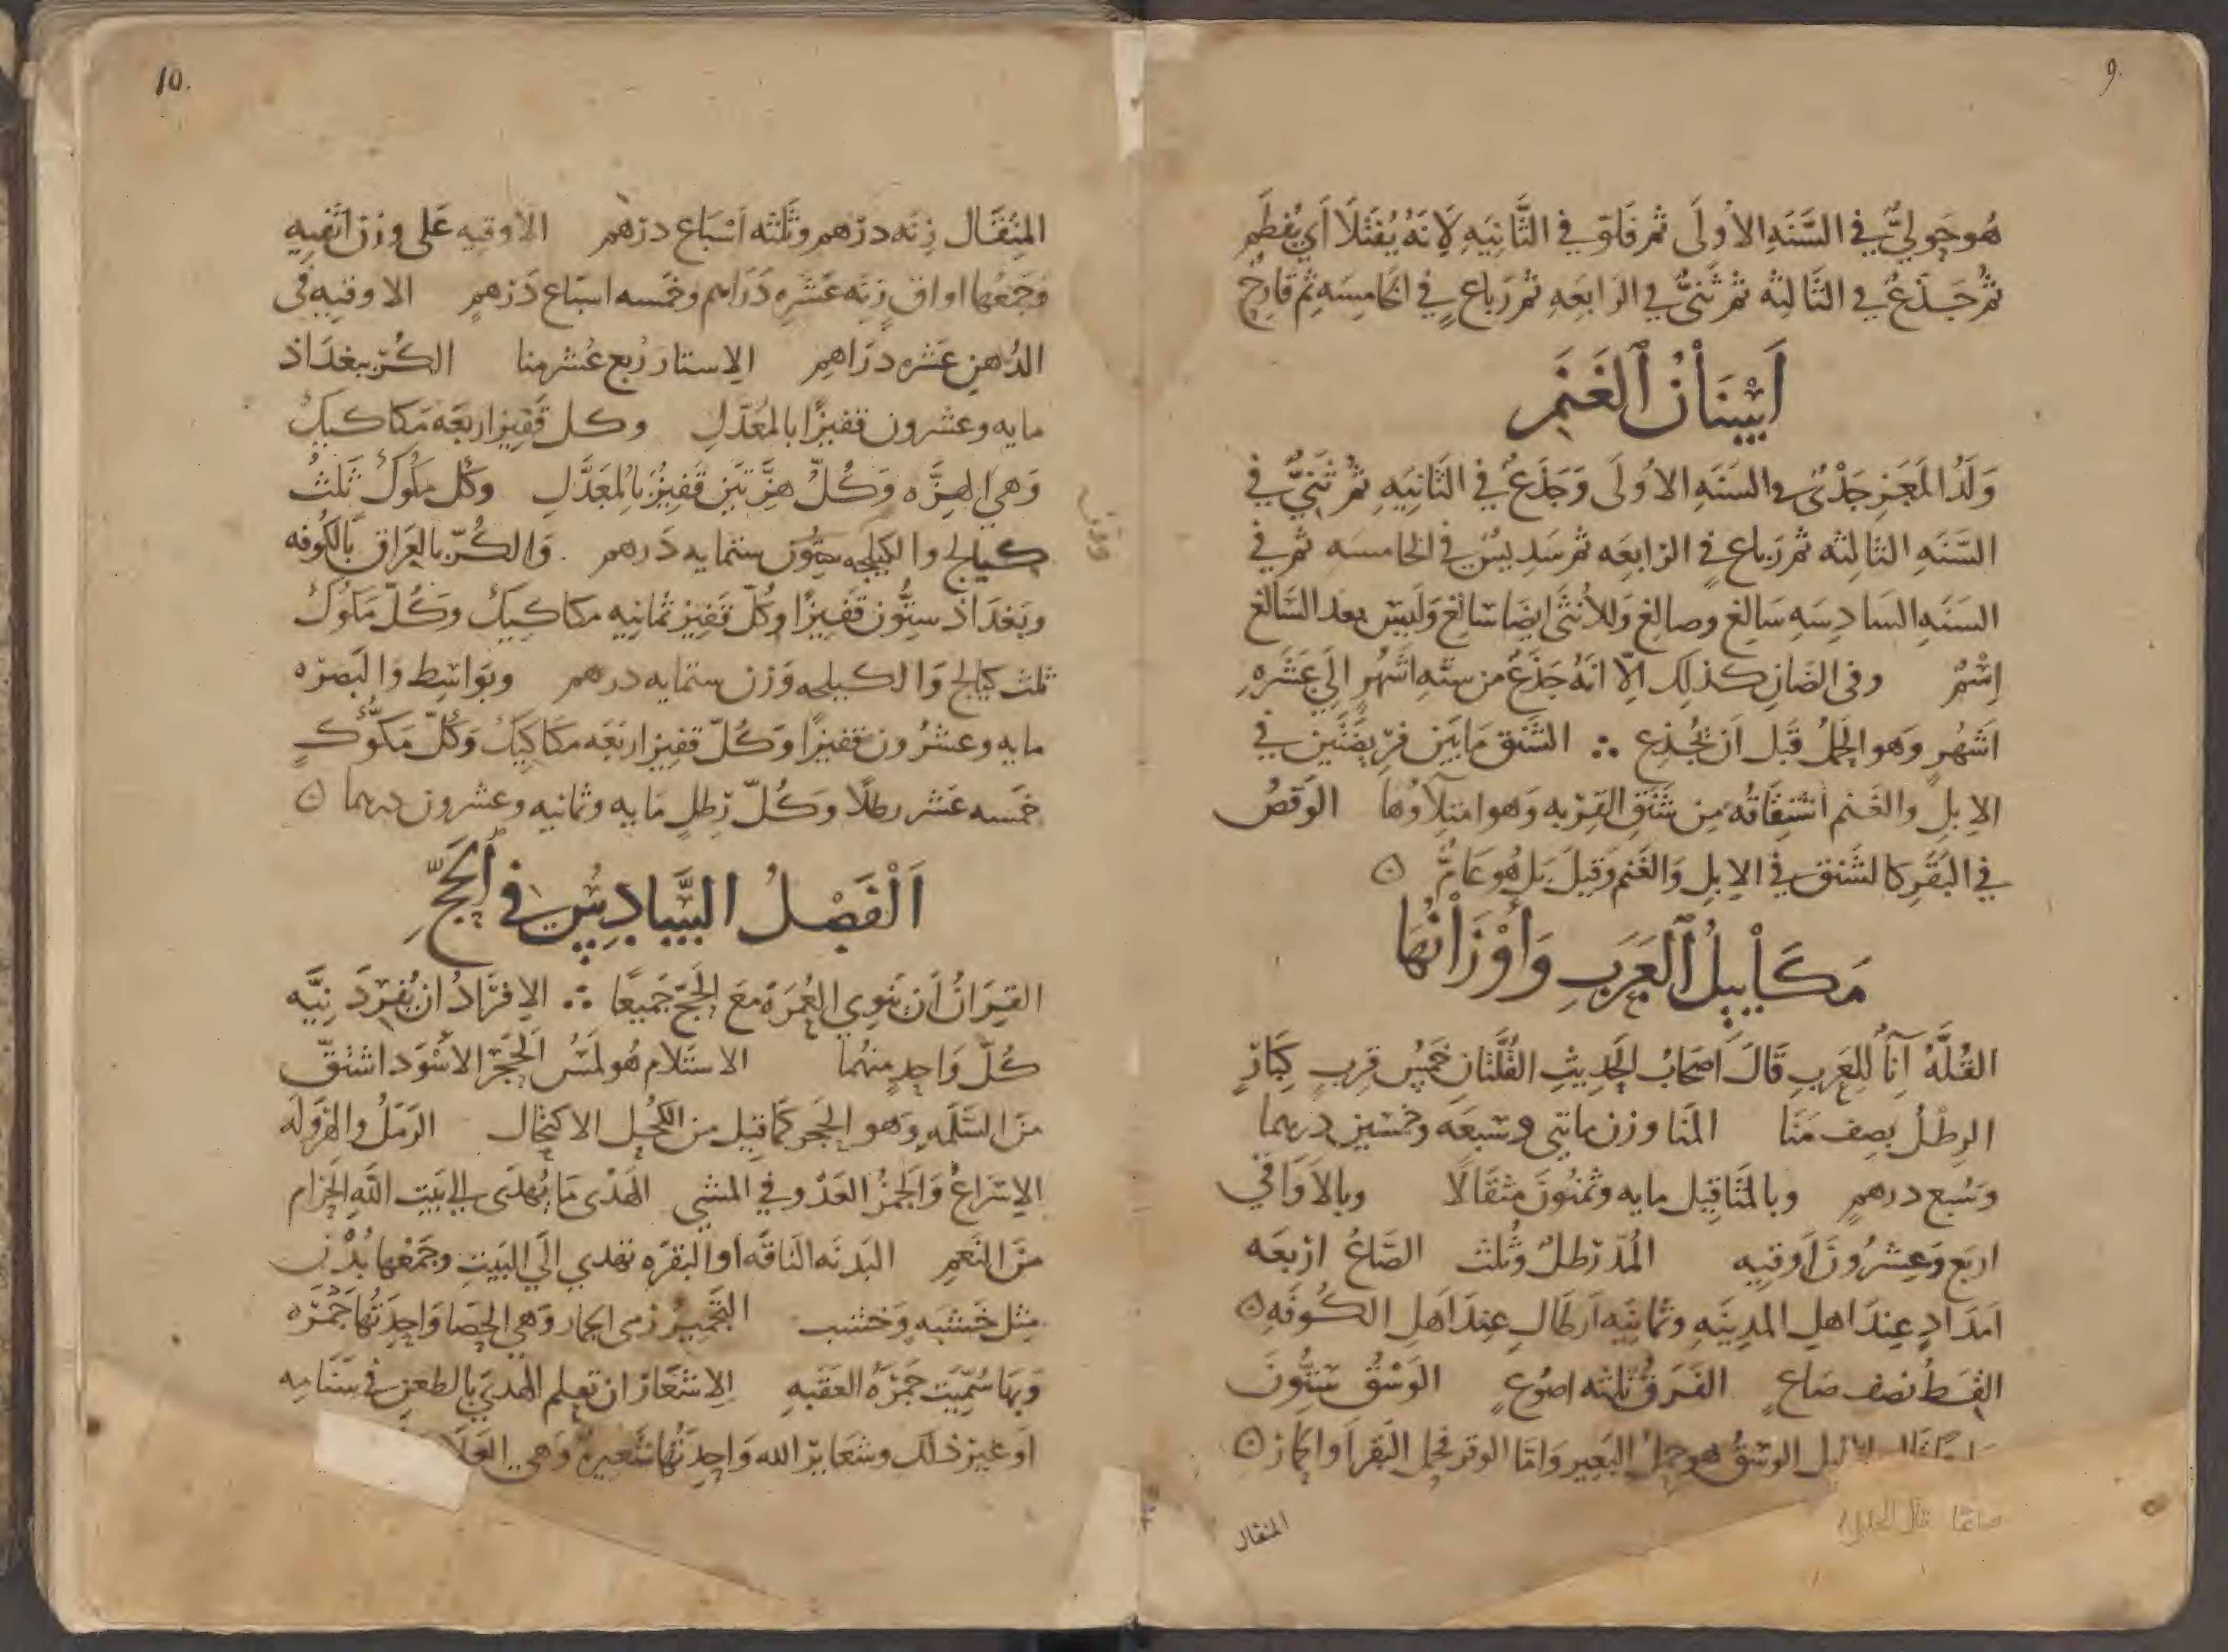 9.
هُو حَوليٌّ في السَّنَهِ الاُولَى ثم فَلوّ في الثَّانِيَهِ لاِنَهُ يُفْتَلَا اَي يُفطَم
ثمُ جَذَعٌ في الثَّالِثَه ثم ثَنىٌّ في الرَابِعَهِ ثم رَباع في الخَامِسَهِ ثم قَارِحٌ
اَسْنَانُ الغَنَمِ
وَلَدُ المَعَزِ جَدْىٌ في السَنَهِ الاُولَى وَجَذَعٌ في الثَانِيَهِ ثم ثَنيٌّ في
السَّنَهِ الثَالِثه ثم رَباع في الرابِعَه ثم سَدِيسٌ في الخامسَه ثم في
السَنَهِ السَادِسَهِ سَالِغ وصالِغ وَللاُنثَى ايضَا سَالِغ وَلَيسَ بعد السَالغ
اِسْمٌ وفى الضَانِ كذلِك الِاّ انَهُ جَذَعٌ من ستَهِ اَشهُرٍ اِلَى عَشَرهِ
اَشهُرٍ وَهو الحَملُ قَبل اَن يُجذِع ∴ الشَنَق مَا بَين فرِيضَتَين في
الاِبلِ والغَنم اشتِقَاقُه مِن شَنَقِ القِربه وَهو امتلاوُها الوَقصُ
في البَقَرِ كالشَنق في الاِبِلِ وَالغَنم وَقيلَ بَل هُو عَامٌّ ۝
مَكَايِيلُ العَرَبِ وَاَوْزَانُهَا
القُلَّهُ آنَاٌ للِعَربِ قَالَ اَصحَابُ الحَدِيثِ القُلَّتَانِ خَمسُ قِربٍ كِبَارٍ
الرِطلُ نِصف مَنَا المَنَا وزن ماتيى وسَبعَه وخمسين درهما
وَسُبع درهمٍ وبالمَثَاقِيل مايه وثمنُونَ مثقَالًا وبالاَوَاقي
اربَع وَعِشرُونَ اَوقيِه المُدّ رَطلٌ وَثُلث الصَّاعُ اربَعَه
اَمدَادٍ عِندَ اهلِ المدِينَهِ وثمانيَه اَرطَالٍ عِندَ اَهلِ الكُوفَهِ ۝
القِسطُ نصف صَاعٍ الفَرَق ثلثه اصوُعٍ الوَسْقُ سِتُّونَ
الوسْقُ هو حِملُ البَعِير وَامّا الوقر فحمل البَقر اَو الحمَار ۝
صاعًا قال الخليل
المثقال
10.
المثِقَال زِنَه درهم وثَلثه اَسْبَاع درهم الاوقيه عَلى وزن اثفِيه
وَجمعُها اواقٍ زِنَه عَشَره دَرَاهم وخمَسه اسبَاع دَرهمٍ الاوقيه فى
الدُهنِ عَشره درَاهِم الِاستار رُبع عُشر منا الكُرّ ببغدَاذ
مايه وعشرون قفيزًا بالمُعَدَّلِ وكل قَفِيز اربَعَه مَكاكيكَ
وَهي الهَزَّه وَكُلّ هزَّتَين قَفِيزٌ بالِمُعَدَّلِ وكُل مَكوُكٍ ثَلثُ
كيالج والكيلجه وزن ستمايه دَرهم وَالكُرّ بالعِرَاق بالكُوفه
وبَغدَاذ سِتُّون قَفِيزًا وكُلّ قَفِيز ثمانِيه مكاكِيكَ وَكُلّ مَكوُكٍ
ثلث كيَالج وَالكيلجه وَزن ستمايه درهم وبوَاسِط وَالبَصرَه
مايه وعشُرون قفيزًا وَكُلّ قفِيز اربَعَه مَكَاكِيَكَ وَكُلّ مَكّوُّكٍ
خمَسه عَشر رطلًا وَكُلّ رَطلٍ مَايه وثمانيه وعشرون درهما ۝
اَلْفَصْلُ السَّادِسُ في الحَجِّ
القِرَانُ اَن يَنوِي العُمرَة مَعَ الحَجّ جَميعًا ∴ الاِفرَادُ ان يُفرِدَ نِيَّه
كُلّ وَاحدٍ منهُمَا الاستلَام هُو لمَسُ الحَجَر الاَسْوَد اشتُقّ
منَ السَّلمَهِ وَهو الحَجر كَمَا قيِل من الكُحل الاكتِحَال الرَمَلُ والهَروَلَه
الاِسرَاعُ وَالجَمزُ العَدْو في المشي الهَدْى مَا يُهدَى الي بَيت اللّه الحَرَام
منَ النَعمِ البَدنَه النَاقَه اَو البقَره تهدي الَي البَيتِ وجَمعُها بُدْن
مِثل خَشبَه وَخشب التَجمِيرُ رَمى الجمار وَهي الحَصَا وَاحِدَتُها جَمْرَه
وَبهَا سُمّيَت جَمرَهُ العَقَبهِ الاِشعَار ان تعلم الهدَي بالطعنِ في سَنَامِه
اَو غيرِ ذلَك وشعَايرُ الله وَاحِدَتُها شَعيره وَهي العَلَا
وقف